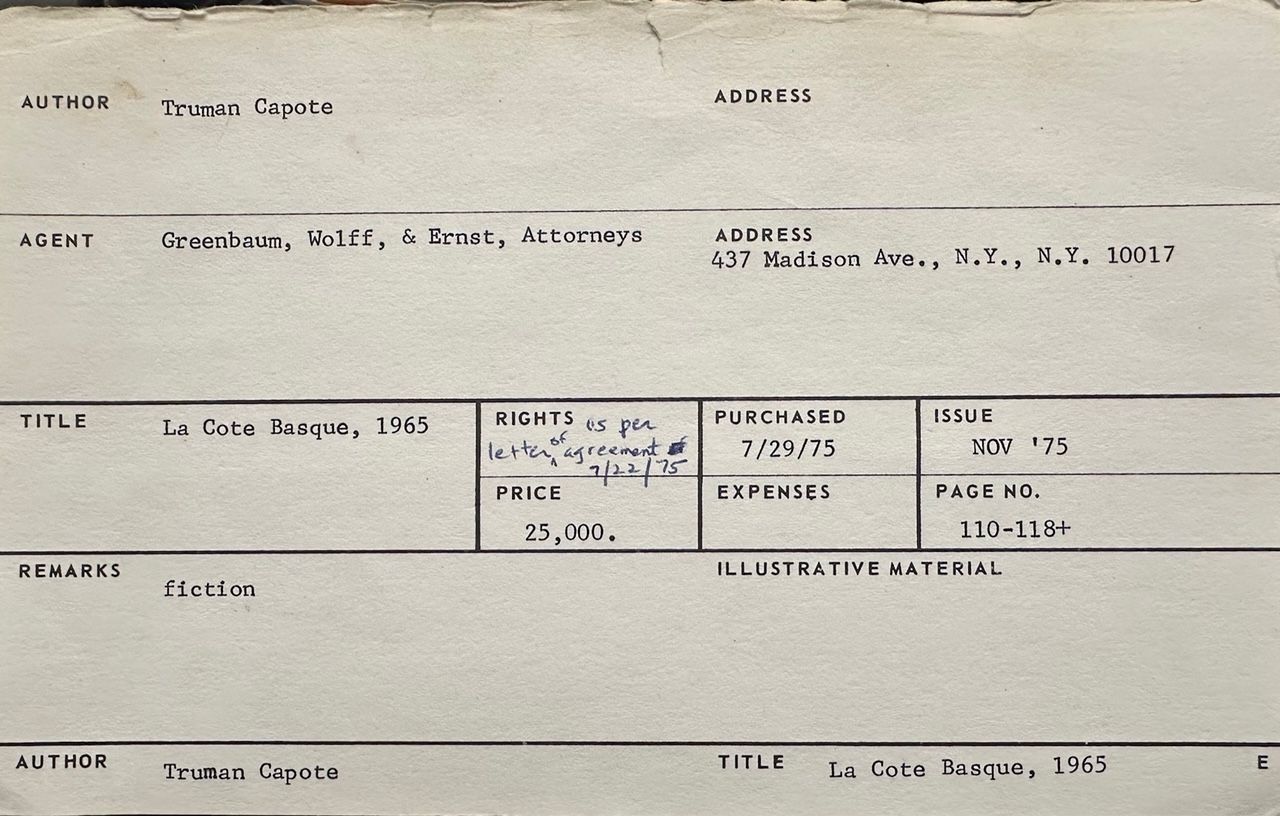 AUTHOR Truman Capote ADDRESS
AGENT Greenbaum, Wolff, & Ernst, Attorneys ADDRESS
437 Madison Ave., N.Y., N.Y. 10017
TITLE La Cote Basque, 1965
RIGHTS as per
letter of agreement
7/22/75
PURCHASED
7/29/75
ISSUE
NOV '75
PRICE
25,000.
EXPENSES
PAGE NO.
110-118+
REMARKS fiction
ILLUSTRATIVE MATERIAL
AUTHOR Truman Capote TITLE La Cote Basque, 1965 E